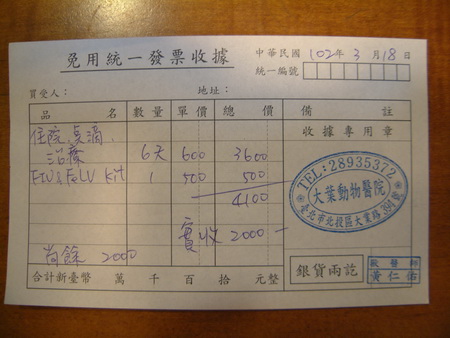 免用統一發票收據
中華民國 102年 3月 18日
統一編號
買受人：
地址：
品名 數量 單價 總價 備註
住院,点滴,
治療 6天 600 3600
FIV & FeLV Kit 1 500 500
4100
實收 2000 -
尚餘 2000
收據專用章
TEL:28935372
大葉動物醫院
臺北市北投區大業路
合計新臺幣 萬 千 百 拾 元整
銀貨兩訖
獸醫師
黃仁佑